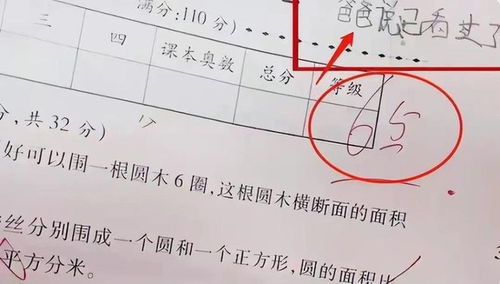 满分:110 分)
爸爸说已看过了
三 四 课本奥数 总分 等级
65
分,共 32 分)
好可以围一根圆木 6 圈,这根圆木横断面的面积
丝分别围成一个圆和一个正方形,圆的面积比
平方分米。